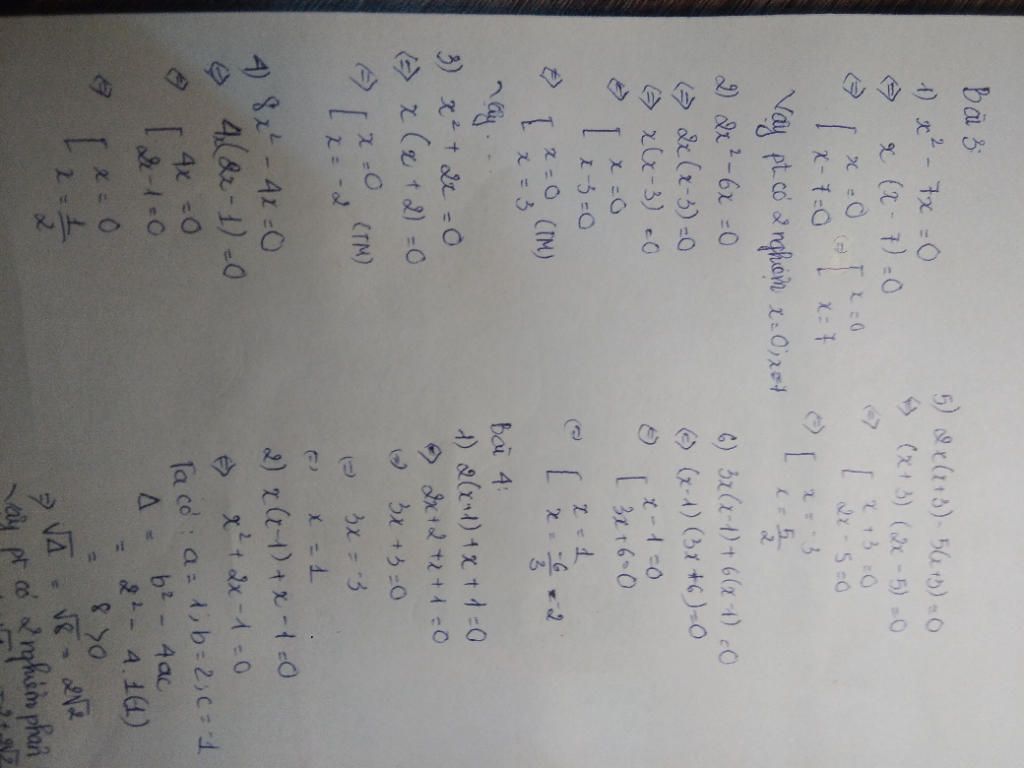 Bài 3:
1) x² - 7x = 0
⇔ x (x - 7) = 0
⇔ [ x = 0 x - 7 = 0 ⇔ [ x = 0 x = 7
Vậy pt có 2 nghiệm x = 0; x = 7
2) 2x² - 6x = 0
⇔ 2x(x - 3) = 0
⇔ x(x - 3) = 0
⇔ [ x = 0
x - 3 = 0
⇔ [ x = 0 (TM)
x = 3
Vậy...
3) x² + 2x = 0
⇔ x (x + 2) = 0
⇔ [ x = 0 (TM)
x = -2
4) 8x² - 4x = 0
⇔ 4x(2x - 1) = 0
⇔ [ 4x = 0
2x - 1 = 0
⇔ [ x = 0
x = 1/2
5) 2x(x + 3) - 5(x + 3) = 0
⇔ (x + 3) (2x - 5) = 0
⇔ [ x + 3 = 0
2x - 5 = 0
⇔ [ x = -3
x = 5/2
6) 3x(x - 1) + 6(x - 1) = 0
⇔ (x - 1) (3x + 6) = 0
⇔ [ x - 1 = 0
3x + 6 = 0
⇔ [ x = 1
x = -6/3 = -2
Bài 4:
1) 2(x + 1) + x + 1 = 0
⇔ 2x + 2 + x + 1 = 0
⇔ 3x + 3 = 0
⇔ 3x = -3
⇔ x = 1
2) x(x - 1) + x - 1 = 0
⇔ x² + 2x - 1 = 0
Ta có: a = 1; b = 2; c = -1
Δ = b² - 4ac
= 2² - 4.1(1)
= 8 > 0
⇒ √Δ = √8 = 2√2
Vậy pt có 2 nghiệm phân